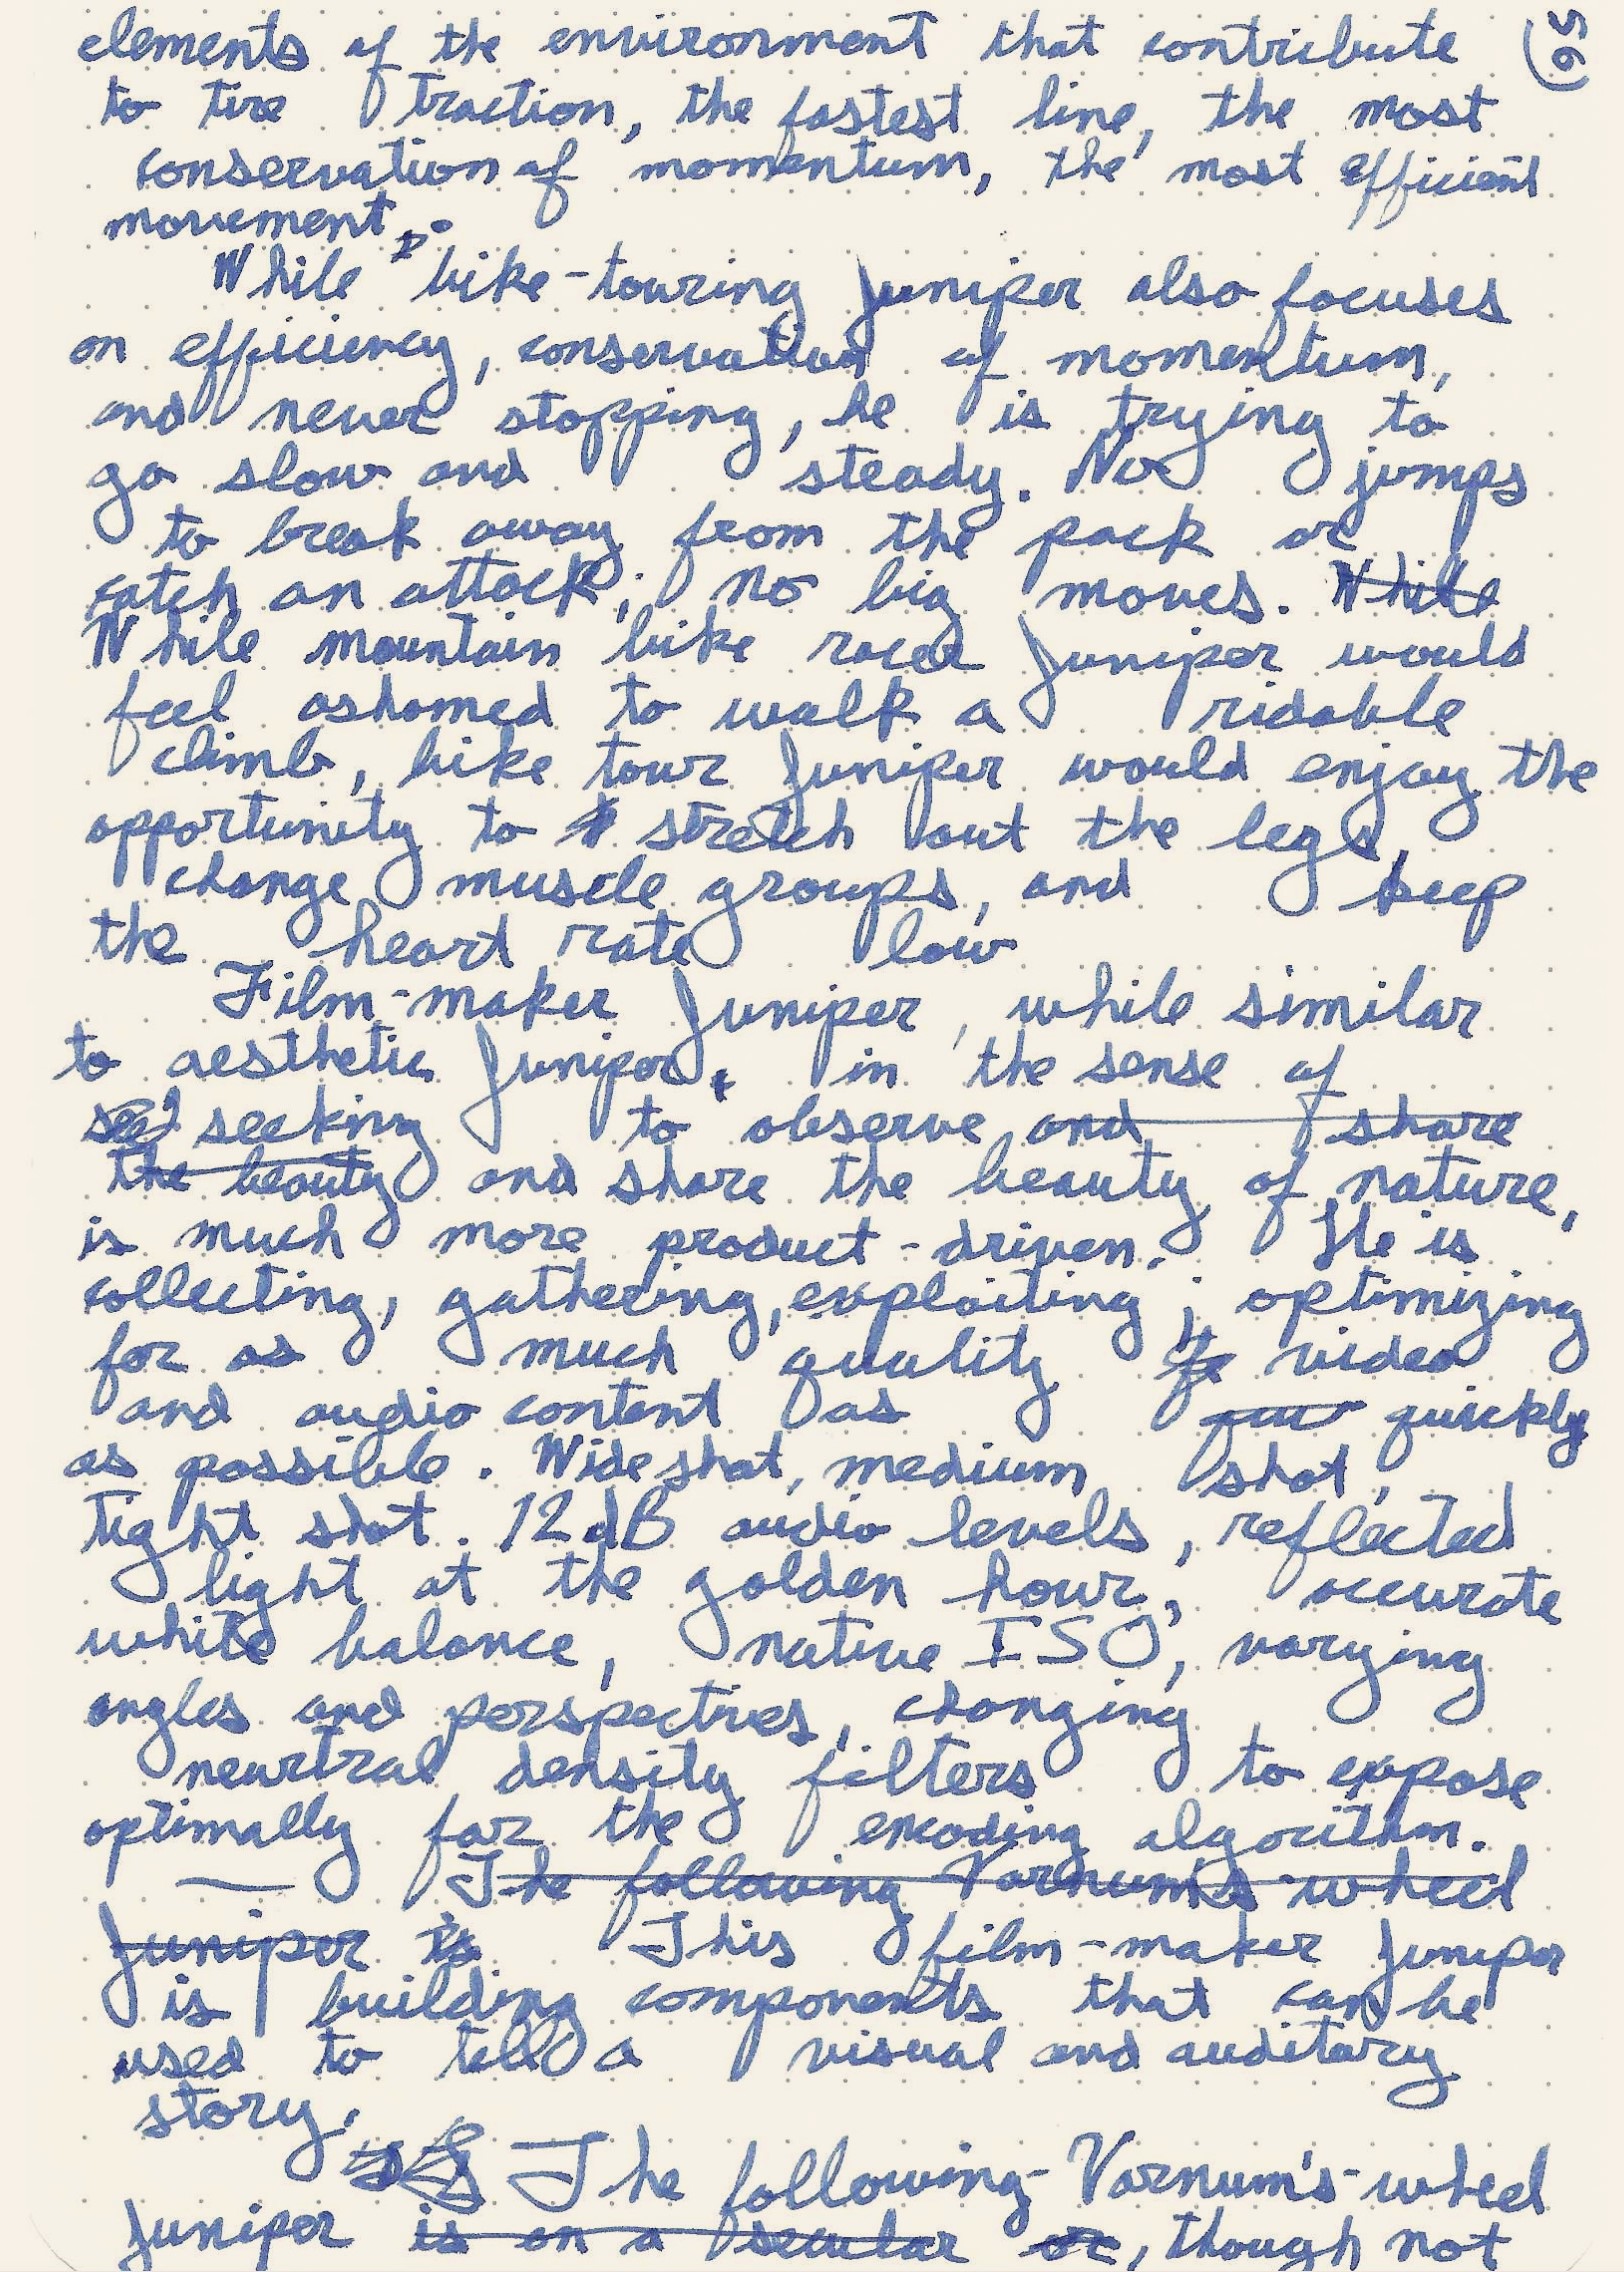 elements of the environment that contribute (95
to tire traction, the fastest line, the most
conservation of momentum, the most efficient
movement.
While bike-touring Juniper also focuses
on efficiency, conservation of momentum,
and never stopping, he is trying to
go slow and steady. No jumps
to break away from the pack or
catch an attack; no big moves. While
While mountain bike racer Juniper would
feel ashamed to walk a ridable
climb, bike tour Juniper would enjoy the
opportunity to stretch out the legs,
change muscle groups, and keep
the heart rate low
Film-maker Juniper, while similar
to aesthetic Juniper, in the sense of
seeking to observe and share
the beauty and share the beauty of nature,
is much more product-driven. He is
collecting, gathering, exploiting; optimizing
for as much quality video
and audio content as quickly
as possible. Wide shot, medium shot,
tight shot. 12dB audio levels, reflected
light at the golden hour, accurate
white balance, native ISO, varying
angles and perspectives, changing
neurtral density filters to expose
optimally for the encoding algorithm.
The following Varnum's wheel
Juniper is This film-maker Juniper
is building components that can be
used to tell a visual and auditary
story.
The following-Varnum's-wheel
Juniper is on a secular or, though not